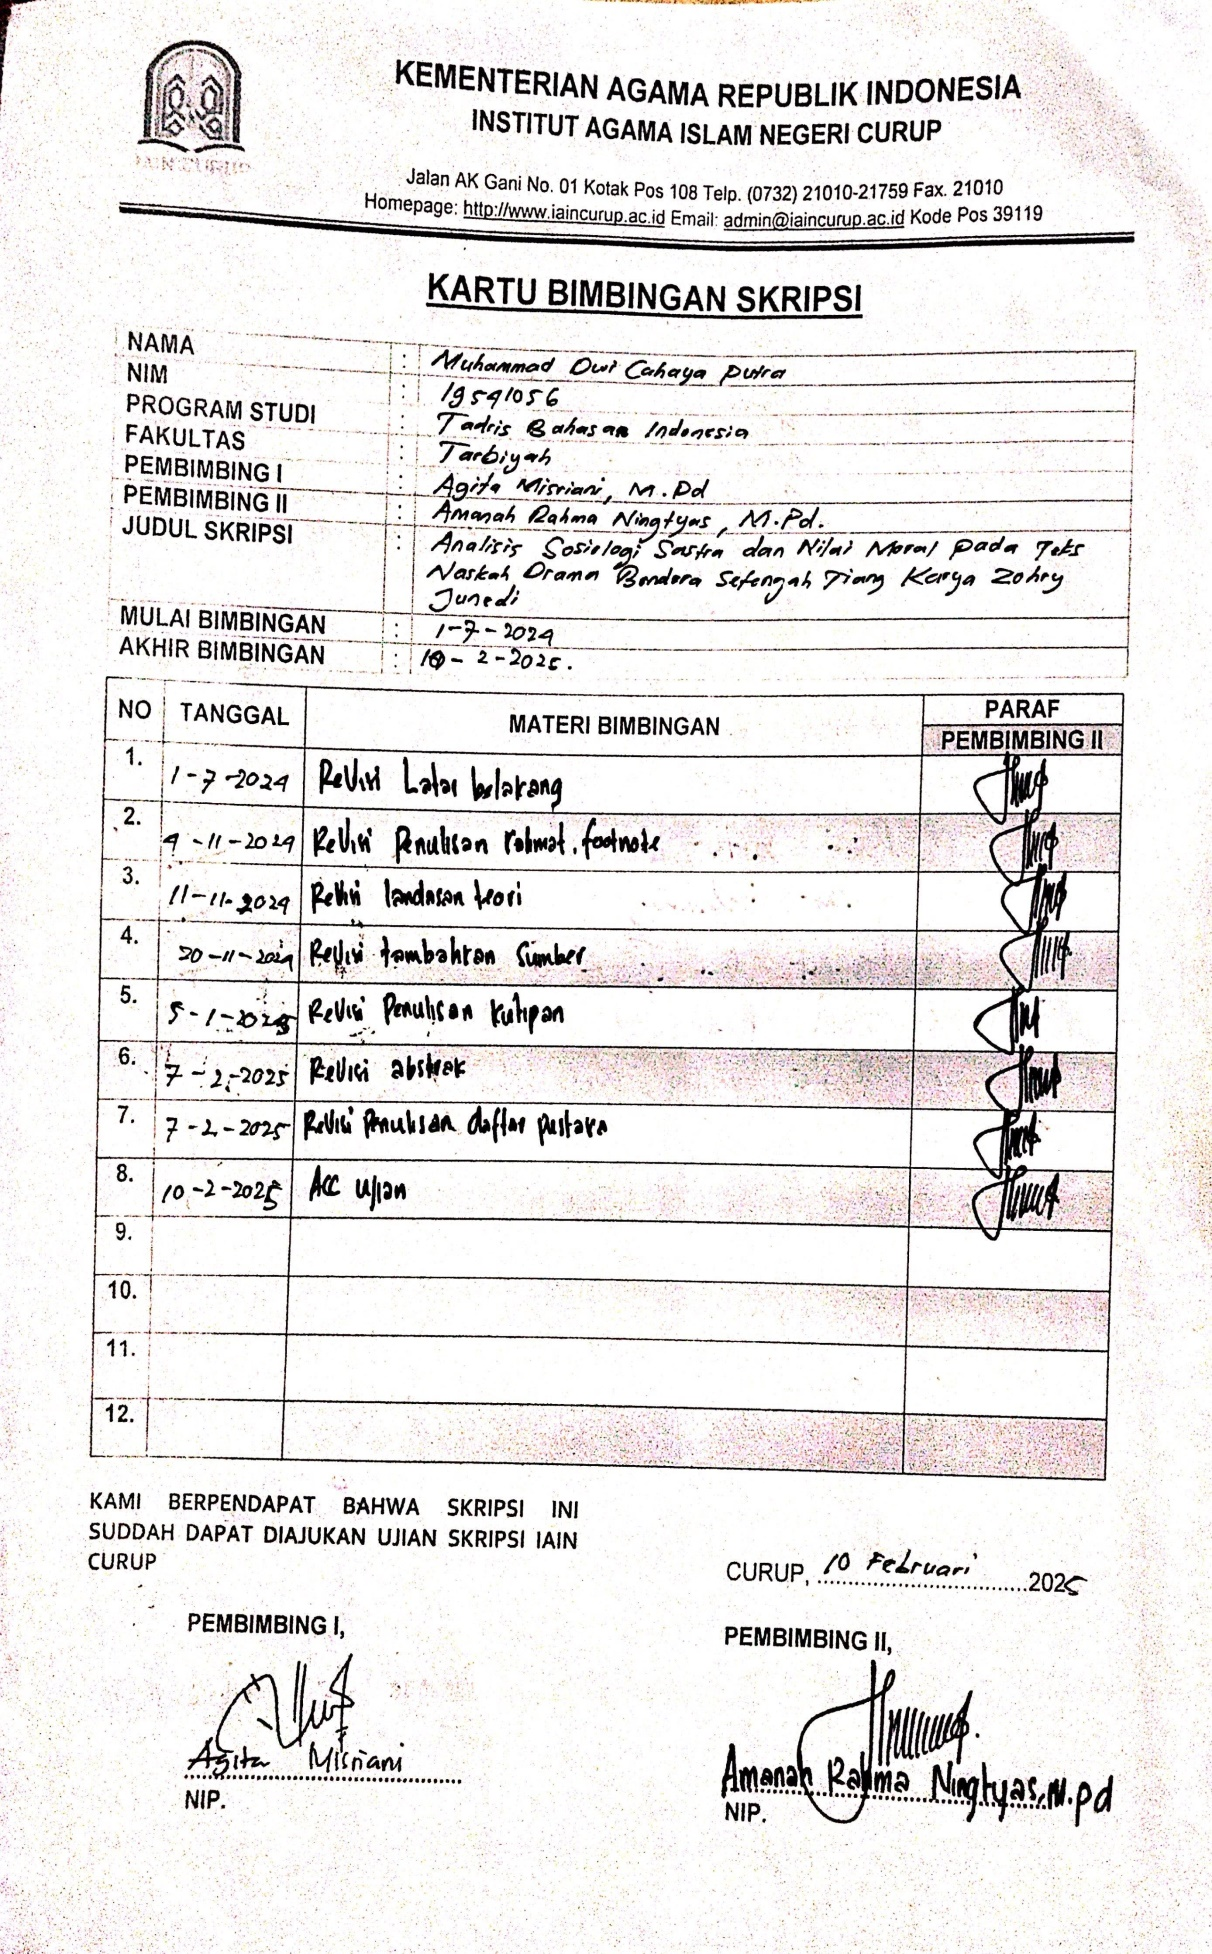 IAIN CURUP
KEMENTERIAN AGAMA REPUBLIK INDONESIA
INSTITUT AGAMA ISLAM NEGERI CURUP
Jalan AK Gani No. 01 Kotak Pos 108 Telp. (0732) 21010-21759 Fax. 21010
Homepage: http://www.iaincurup.ac.id Email: admin@iaincurup.ac.id Kode Pos 39119
KARTU BIMBINGAN SKRIPSI
NAMA : Muhammad Dwi Cahaya Putra
NIM : 19541056
PROGRAM STUDI : Tadris Bahasan Indonesia
FAKULTAS : Tarbiyah
PEMBIMBING I : Agita Misriani, M.Pd
PEMBIMBING II : Amanah Rahma Ningtyas, M.Pd.
JUDUL SKRIPSI : Analisis Sosiologi Sastra dan Nilai Moral pada Teks
Naskah Drama Bendera Setengah Tiang Karya Zohry
Junedi
MULAI BIMBINGAN : 1-7-2024
AKHIR BIMBINGAN : 10-2-2025.
NO TANGGAL MATERI BIMBINGAN PARAF
PEMBIMBING II
1. 1-7-2024 Revisi Latar belakang
2. 9-11-2024 Revisi Penulisan footnote
3. 11-11-2024 Revisi landasan teori
4. 20-11-2024 Revisi tambahkan sumber
5. 5-1-2025 Revisi Penulisan kutipan
6. 7-2-2025 Revisi abstrak
7. 7-2-2025 Revisi Penulisan daftar pustaka
8. 10-2-2025 ACC Ujian
9.
10.
11.
12.
KAMI BERPENDAPAT BAHWA SKRIPSI INI
SUDDAH DAPAT DIAJUKAN UJIAN SKRIPSI IAIN
CURUP
CURUP, 10 Februari 2025
PEMBIMBING I,
PEMBIMBING II,
Agita Misriani
Amanah Rahma Ningtyas, M.pd
NIP.
NIP.